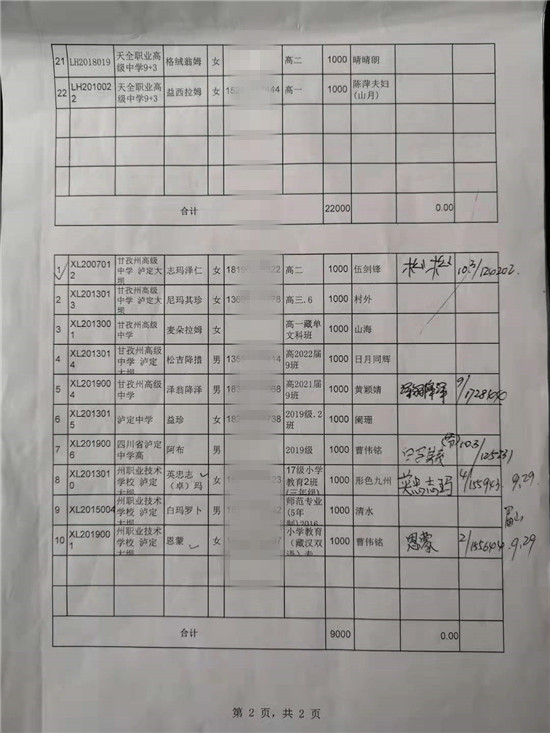 21 LH2018019 天全职业高级中学9+3 格绒翁姆 女 高二 1000 晴晴朗
22 LH2010022 天全职业高级中学9+3 益西拉姆 女 高一 1000 陈萍夫妇(山月)
合计 22000 0.00
1 XL2007012 甘孜州高级中学 泸定大坝 志玛泽仁 女 高二 1000 伍剑锋 10.3/
2 XL2013013 甘孜州高级中学 泸定大坝 尼玛其珍 女 高三.6 1000 村外
3 XL2013001 甘孜州高级中学 麦朵拉姆 女 高一藏单文科班 1000 山海
4 XL2013014 甘孜州高级中学 泸定 松吉降措 男 高2022届9班 1000 日月同辉
5 XL2019004 甘孜州高级中学 泽翁降泽 男 高2021届9班 1000 黄颖婧 泽翁降泽
6 XL2013015 泸定中学 益珍 女 2019级.2班 1000 阑珊
7 XL2019006 四川省泸定中学高 阿布 男 2019级 1000 曹伟铭 10.3/
8 XL2013010 州职业技术学校 泸定 英忠志(卓)玛 女 17级小学教育2班(三年级) 1000 形色九州 英忠志玛 4/155943 9.29
9 XL2015004 州职业技术学校 泸定 白玛罗卜 男 师范专业(5年制)2016 1000 清水
10 XL2019001 州职业技术学校 泸定 恩蒙 女 小学教育(藏汉双语)专 1000 曹伟铭 恩蒙 9.29
合计 9000 0.00
第 2 页，共 2 页